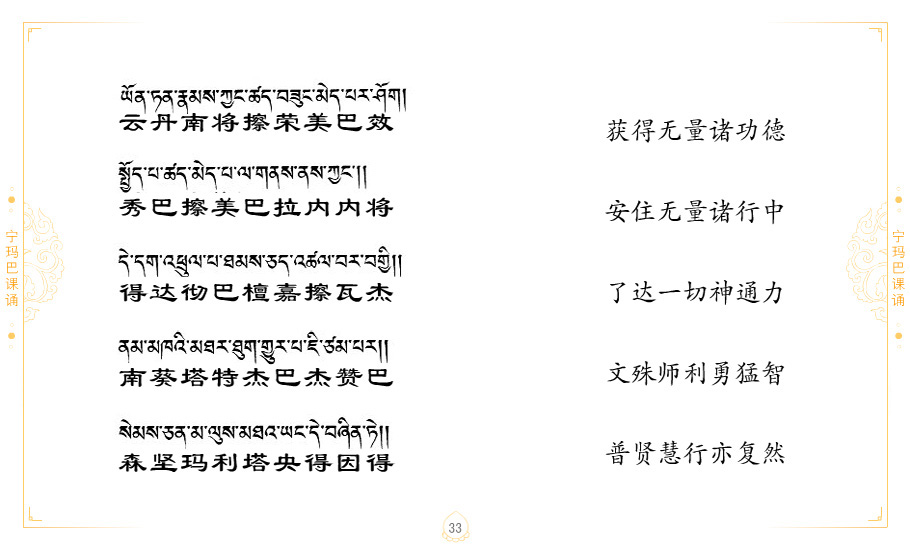 ཡོན་ཏན་རྣམས་ཀྱང་ཚད་བཟུང་མེད་པར་ཤོག།
云丹南将擦荣美巴效
སྤྱོད་པ་ཚད་མེད་པ་ལ་གནས་ནས་ཀྱང་།།
秀巴擦美巴拉内内将
དེ་དག་འཕྲུལ་པ་ཐམས་ཅད་འཚལ་བར་བགྱི།།
得达彻巴檀嘉擦瓦杰
ནམ་མཁའི་མཐར་ཐུག་གྱུར་པ་ཇི་ཙམ་པར།།
南葵塔特杰巴杰赞巴
སེམས་ཅན་མ་ལུས་མཐའ་ཡང་དེ་བཞིན་ཏེ།།
森坚玛利塔央得因得
获得无量诸功德
安住无量诸行中
了达一切神通力
文殊师利勇猛智
普贤慧行亦复然
宁玛巴课诵
宁玛巴课诵
33